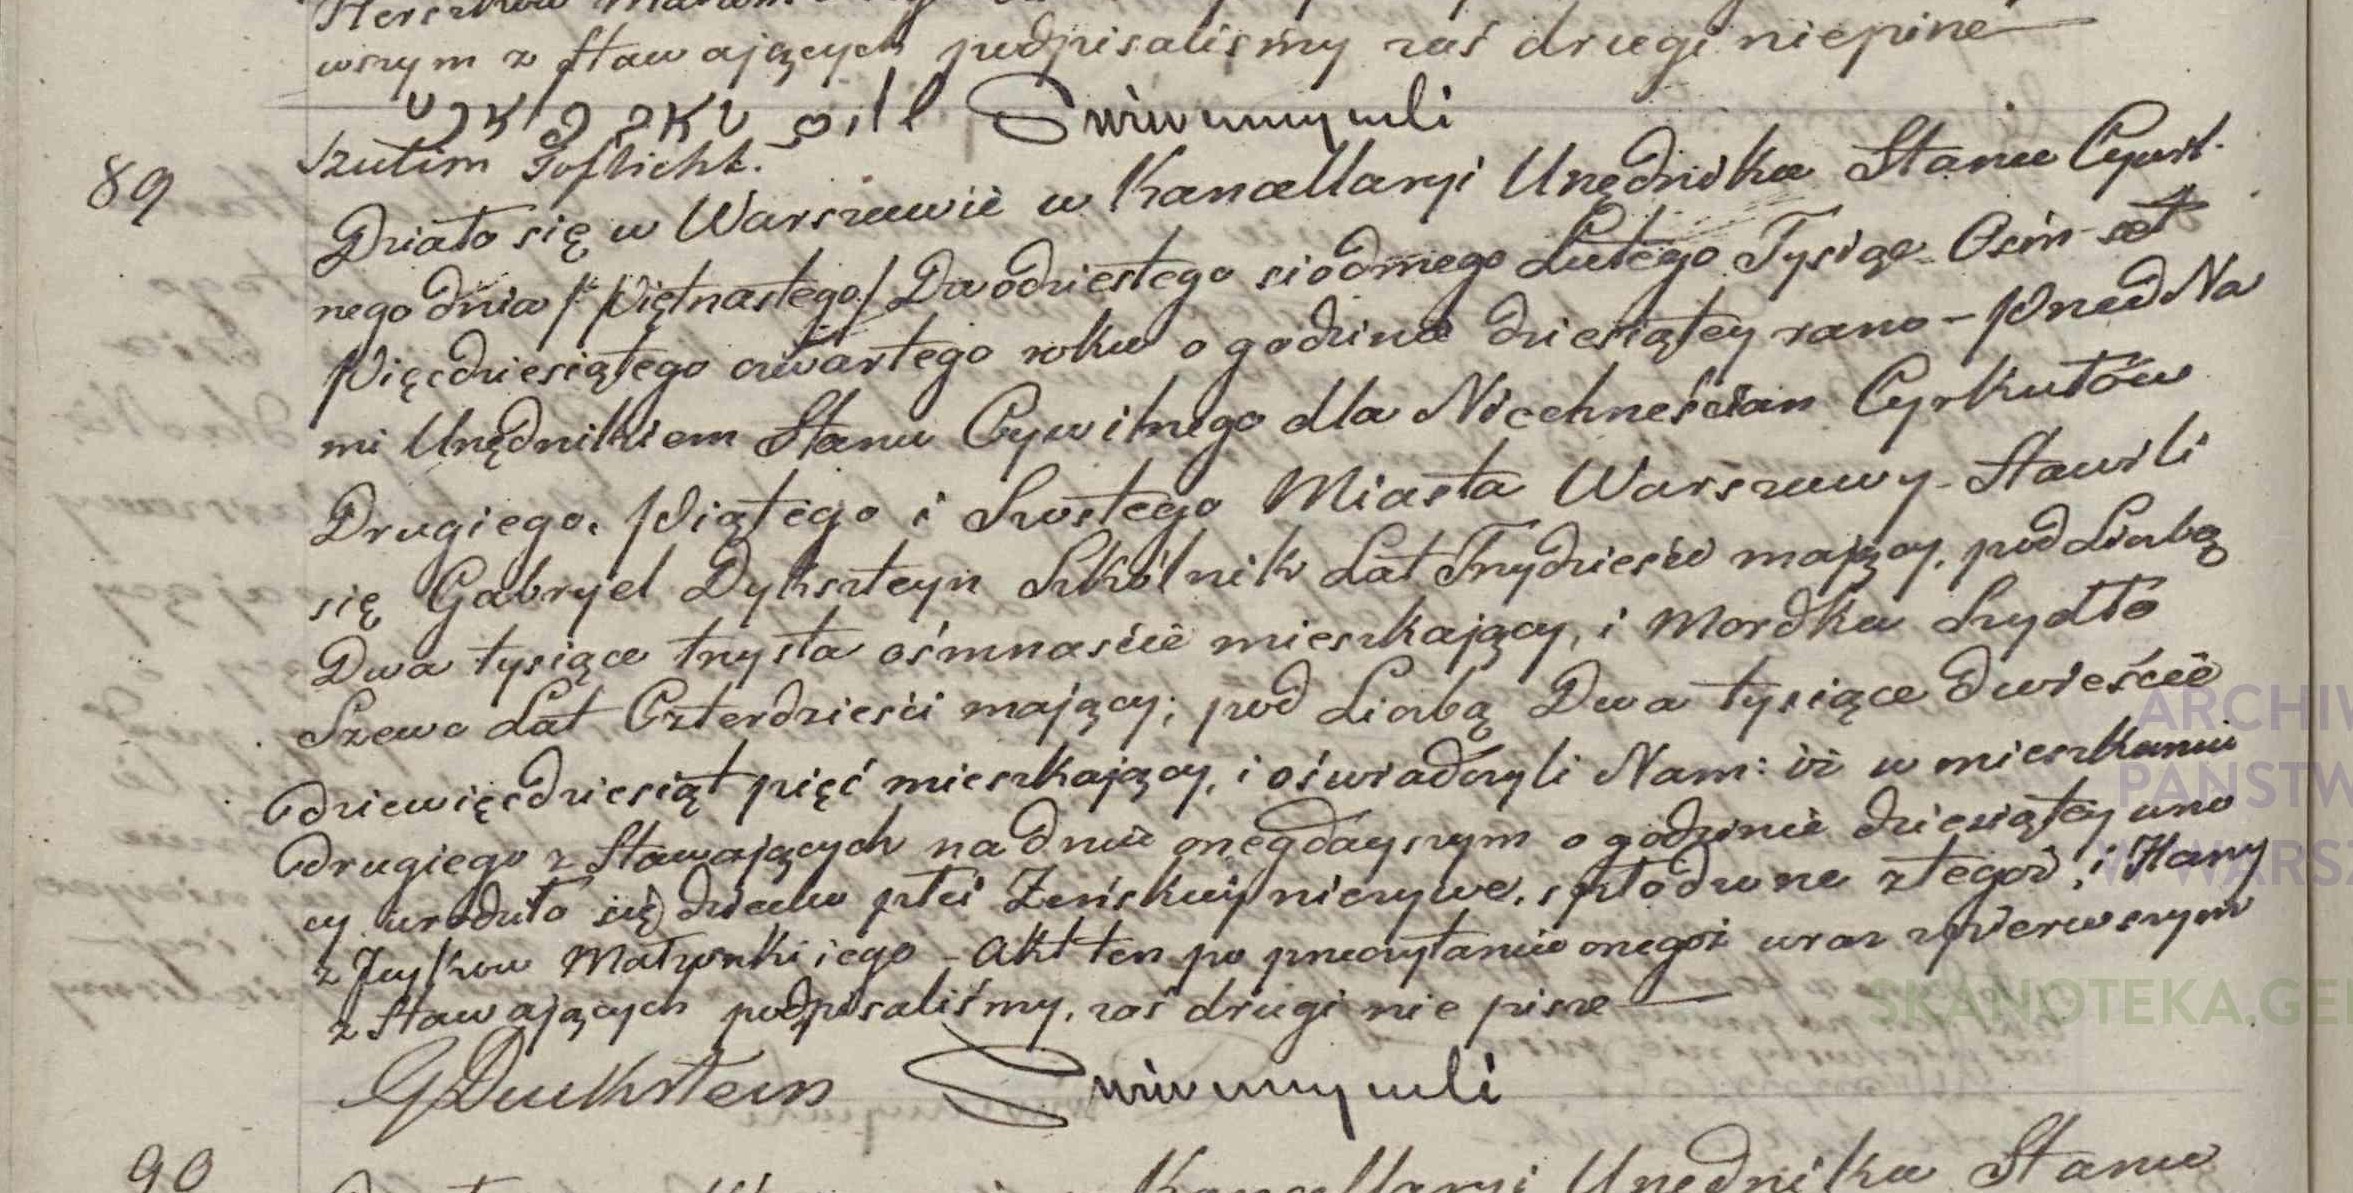 wszym z stawających podpisaliśmy zaś drugi niepisze
Szulim Goflicht.
89
Działo się w Warszawie w Kancellaryi Urzędnika Stanu Cywil-
nego dnia /Piętnastego/ Dwódziestego siodmego Lutego Tysiąc Ośm-set
Pięćdziesiątego czwartego roku o godzinie dziesiątey rano – Przed Na
mi Urzędnikiem Stanu Cywilnego dla Niechrześcian Cyrkułów
Drugiego, Piątego i Szostego Miasta Warszawy – Stawili
się Gabryel Dykszteyn Szkólnik Lat Trzydzieści mający, pod Liczbą
Dwa tysiące trzysta ośmnaście mieszkający, i Mordka Szydło
Szewc Lat Czterdzieści mający; pod Liczbą Dwa tysiące dwieście
dziewięćdziesiąt pięć mieszkający, i oświadczyli Nam: iż w mieszkaniu
drugiego z Stawających na dniu onegdayszym o godzinie dziesiątey w no
cy urodziło się dziecko płci Żeńskiej nieżywe, spłodzone z tegoż i Hany
z małżonki iego – Akt ten po przeczytaniu onegoż wraz z pierwszym
z Stawających podpisaliśmy, zaś drugi nie pisze
GDuckstein
90
Kancellaryi Urzędnika Stanu
ARCHIW
PAŃSTW
W WARSZ
SKANOTEKA.GE